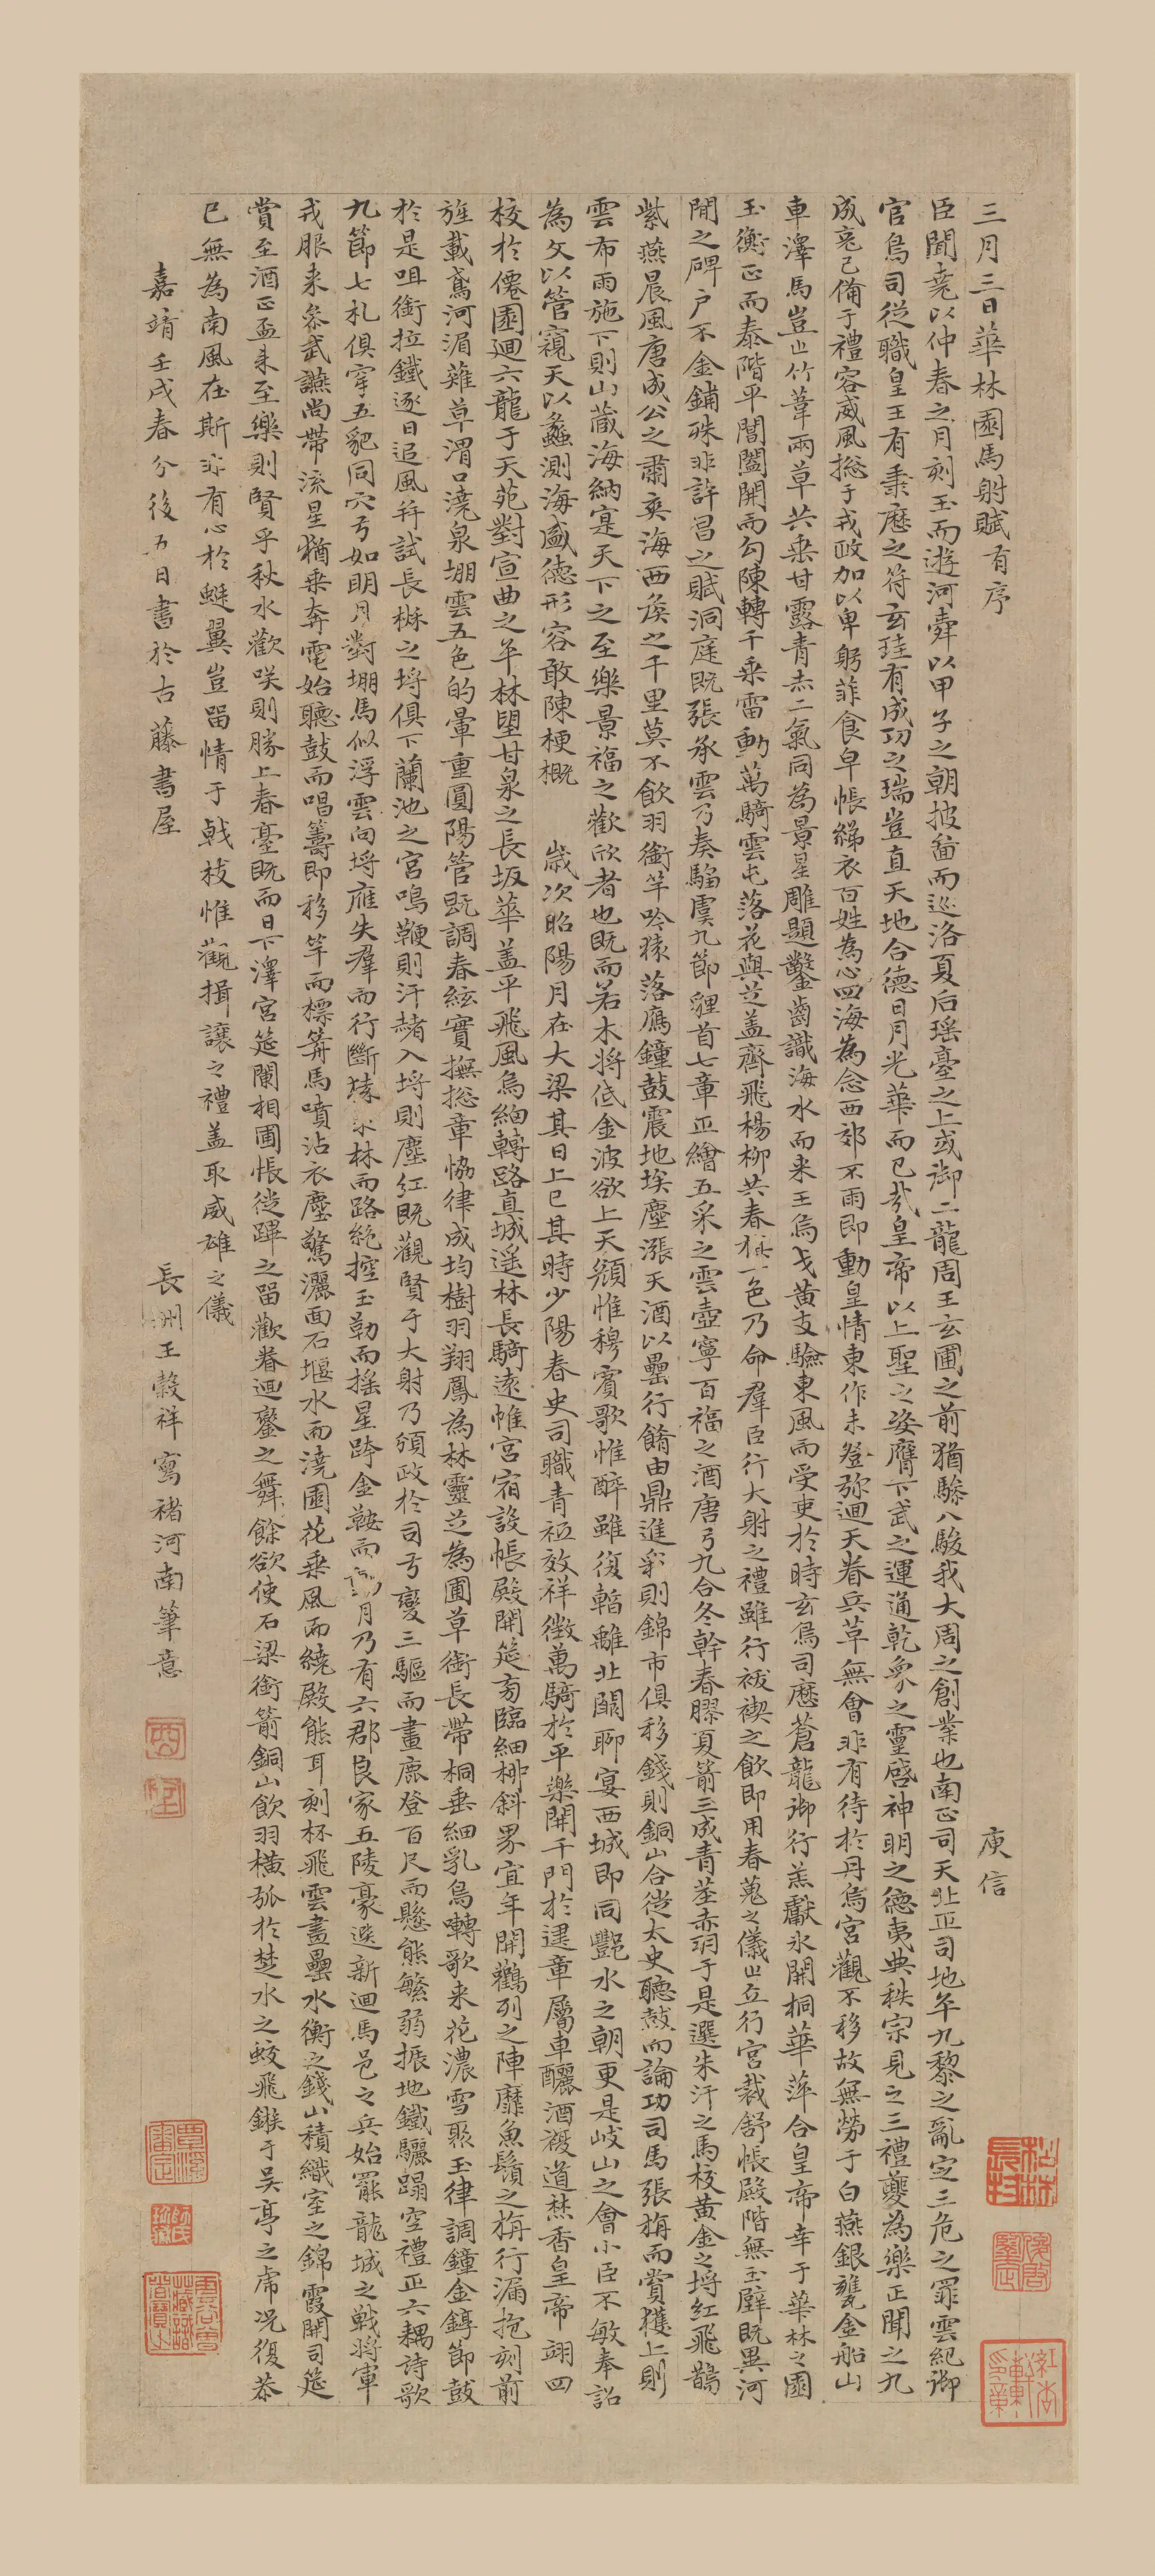 三月三日華林園馬射賦有序 庾信
臣聞堯以仲春之月刻玉而遊河舜以甲子之朝披圖而巡洛夏后瑤臺之上或御二龍周王玄圃之前猶驂八駿我大周之創業也南正司天北正司地平九黎之亂定三危之罪雲紀御
官鳥司從職皇王有秉歷之符玄珪有成功之瑞豈直天地合德日月光華而已哉皇帝以上聖之姿膺下武之運通乾象之靈啓神明之德夷典秩宗見之三禮夔為樂正聞之九
成克己備于禮容威風總于戎政加以卑躬菲食皁帳綈衣百姓為心四海為念西郊不雨即動皇情東作未登弥迴天眷兵革無會非有待於丹烏宮觀不移故無勞于白燕銀甕金船山
車澤馬豈止竹葦兩草共乘甘露青赤二氣同為景星雕題鑿齒識海水而来王烏弋黃支驗東風而受吏於時玄鳥司歷蒼龍御行羔獻氷開桐華萍合皇帝幸于華林之園
玉衡正而泰階平閶闔開而勾陳轉千乘雷動萬騎雲屯落花與芝盖齊飛楊柳共春旗一色乃命羣臣行大射之禮雖行祓禊之飲即用春蒐之儀止立行宮裁舒帳殿階無玉壁既異河
間之碑户不金鋪殊非許昌之賦洞庭既張承雲乃奏騶虞九節貍首七章正繪五采之雲壺寧百福之酒唐弓九合冬幹春膠夏箭三成青莖赤羽于是選朱汗之馬校黃金之埒紅飛鵲
紫燕晨風唐成公之肅爽海西侯之千里莫不飲羽銜竿吟猨落鴈鐘鼓震地埃塵漲天酒以罍行餚由鼎進采則錦市俱移錢則銅山合徙太史聽鼓而論功司馬張旃而賞獲上則
雲布雨施下則山藏海納寔天下之至樂景福之歡欣者也既而若木将低金波欲上天顏惟穆賓歌惟醉雖復暫離北闕聊宴西城即同酆水之朝更是岐山之會小臣不敏奉詔
為文以管窺天以蠡測海盛德形容敢陳梗概 歲次昭陽月在大梁其日上巳其時少陽春史司職青祇效祥徵萬騎於平樂開千門於建章屬車釃酒複道焚香皇帝翊四
校於僊園迴六龍于天苑對宣曲之平林望甘泉之長坂華盖平飛風烏細轉路直城遥林長騎遠帷宮宿設帳殿開筵旁臨細柳斜界宜年開鸛列之陣靡魚鬚之旃行漏抱刻前
旌載鳶河湄薙草渭口澆泉堋雲五色的暈重圓陽管既調春絃實撫總章恊律成均樹羽翔鳳為林靈芝為圃草銜長帶桐垂細乳鳥囀歌来花濃雪聚玉律調鐘金錞節鼓
於是咀銜拉鐵逐日追風並試長楸之埒俱下蘭池之宮鳴鞭則汗赭入埒則塵紅既觀賢于大射乃頒政於司弓變三驅而畫鹿登百尺而懸熊繁弱振地鐵驪蹋空禮正六耦詩歌
九節七札俱穿五豝同穴弓如明月對堋馬似浮雲向埒雁失羣而行斷猨求林而路絶控玉勒而摇星跨金鞍而月乃有六郡良家五陵豪選新迴馬邑之兵始罷龍城之戰将軍
戎服来參武讌尚帶流星猶乘奔電始聽鼓而唱籌即移竿而標箭馬噴沾衣塵驚灑面石堰水而澆園花乘風而繞殿熊耳刻杯飛雲畫罍水衡之錢山積織室之錦霞開司筵
賞至酒正盃来至樂則賢乎秋水歡咲則勝上春臺既而日下澤宮筵闌相圃悵從蹕之留歡眷迴鑾之舞餘欲使石梁銜箭銅山飲羽橫弧於楚水之蛟飛鏃于吴亭之虎况復恭
已無為南風在斯非有心於蜓翼豈留情于戟枝惟觀揖讓之禮盖取威雄之儀
嘉靖壬戌春分後五日書於古藤書屋 長洲王穀祥寫褚河南筆意